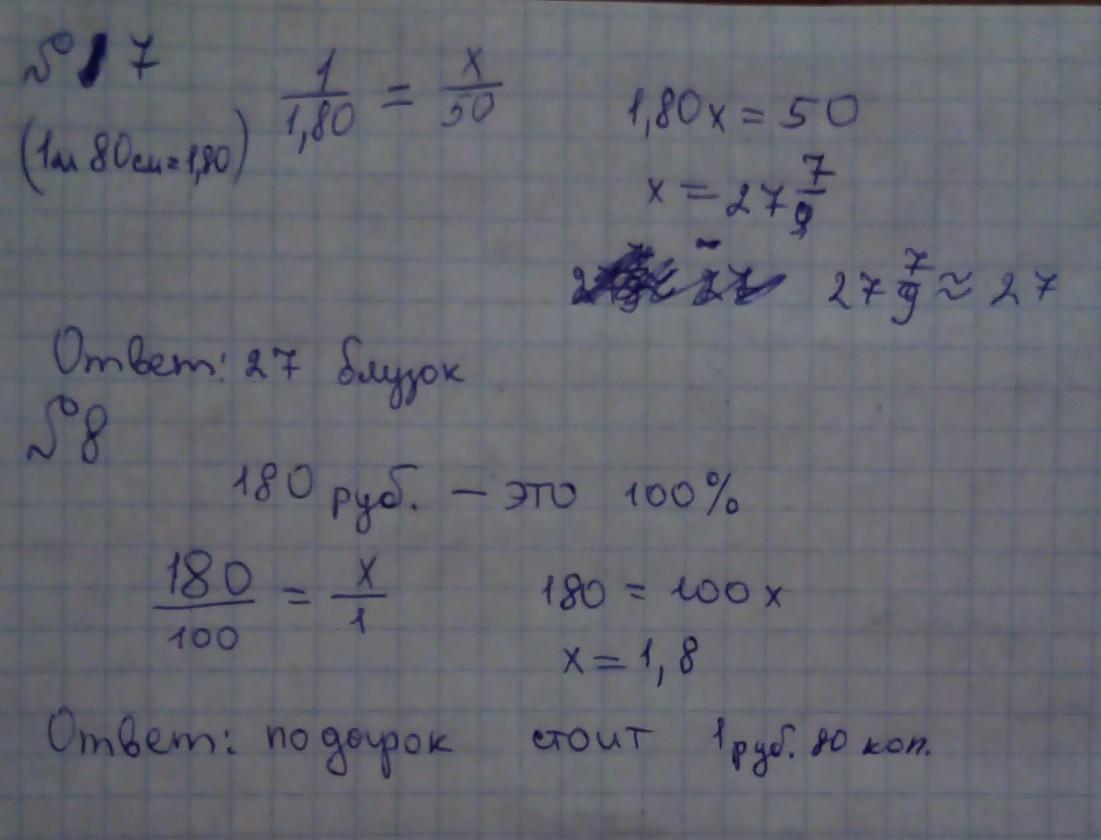 № 7
(1м 80см=1,80)
1/1,80 = x/50
1,80x = 50
x = 27 7/9
27 7/9 ≈ 27
Ответ: 27 блузок
№8
180 руб. – это 100%
180/100 = x/1
180 = 100x
x = 1,8
Ответ: подарок стоит 1 руб. 80 коп.